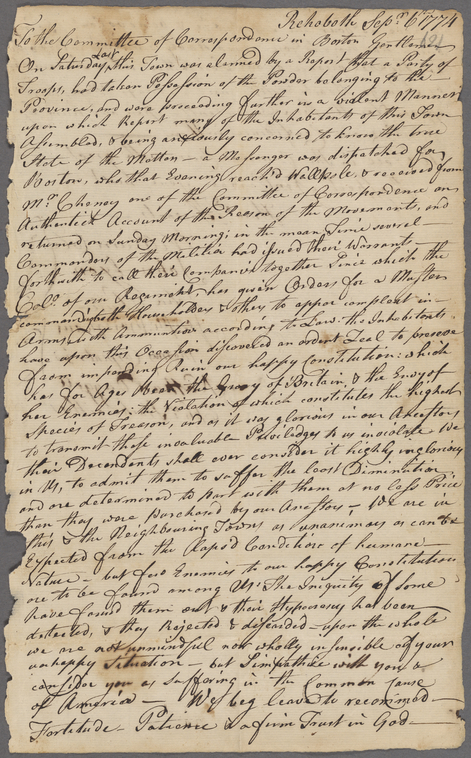 Rehoboth Sepr. 6th 1774
To the Committee of Correspondence in Boston Gentlemen
On Saturday last this Town was alarmed by a Report that a Party of
Troops, had taken Possession of the Powder belonging to the
Province, and were proceeding further in a Violent Manner
upon which Report many of the Inhabitants of this Town
Assembled, & being anxiously concerned to know the true
State of the Matter — a Messenger was dispatched for
Boston, who that Evening reach'd Wallpole, & received from
Mr. Cheney one of the Committee of Correspondence an
Authentick Account of the Reason of the Movements, and
returned on Sunday Morning; in the mean time several
Commanders of the Militia had issued their Warrants
forthwith to call their Companies together Since which the
Colo. of our Regiment, has given Orders for a Muster
commanding both & others to appear compleat in
Arms with Ammunition according to Law. the Inhabitants
have upon this Occasion discovered an ardent Zeal to preserve
from impending Ruin our happy Constitution: which
has for Ages Been the Glory of Britain, & the Envy of
her Enemies; the Violation of which constitutes the highest
Species of Treason, and as it was glorious in our Ancestors
to transmit those invaluable Priviledges to us inviolate We
their Decendents shall ever consider it highly inglorious
in Us, to admit them to suffer the least Diminution
and are determined to part with them at no less Price
than they were Purchased by our Ancestors — We are in
this & the Neighbouring Towns as unanimous as can be
Expected from the Lapsd Condition of humane
Nature — but few Enemies to our happy Constitution
are to be found among Us: The Iniquity of some
have found them out & their Hypocrecy has been
detected, & they Rejected & discarded — upon the whole
we are not unmindful nor wholly insensible of your
unhappy Situation — but Simpathize with you &
consider you as Suffering in the Common Cause
of America — We beg leave to recommend —
Fortitude — Patience & a firm Trust in God —